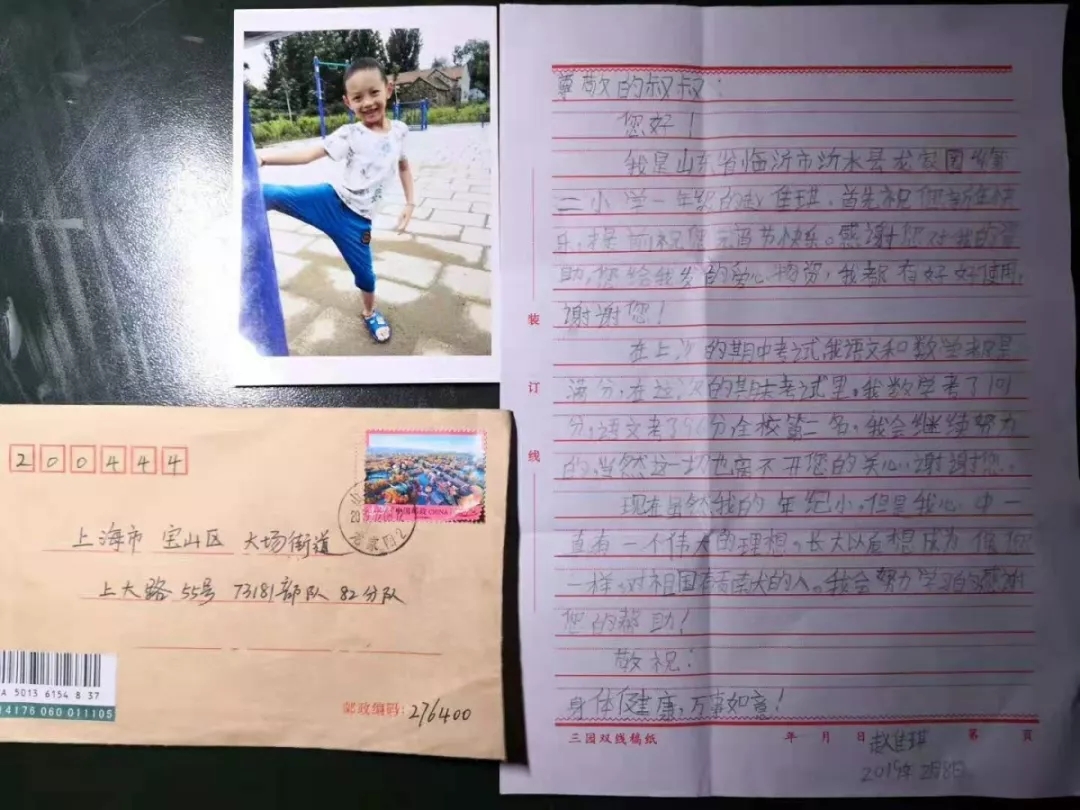 尊敬的叔叔：
您好！
我是山东省临沂市沂水县龙家圈乡第
二小学一年级的赵佳琪，首先祝您新年快
乐，提前祝您元宵节快乐。感谢您对我的
助，您给我发的爱心物资，我都有好好使用，
谢谢您！
在上次的期中考试我语文和数学都是
满分，在这次的期末考试里，我数学考了100
分，语文考了96分，全校第二名。我会继续努力
的，当然这一切也离不开您的关心，谢谢您。
现在虽然我的年纪小，但是我心中一
直有一个伟大的理想。长大以后想成为像您
一样，对祖国有贡献的人。我会努力学习的，感谢
您的帮助！
敬祝：
身体健康，万事如意！
装
订
线
三园双线稿纸 年 月 日 第 页
赵佳琪
2019年2月8日
200444
上海市 宝山区 大场街道
上大路 55号 73181部队 82分队
邮政编码：276400
A 5013 6154 8 37
14176 060 011105
中国邮政 CHINA